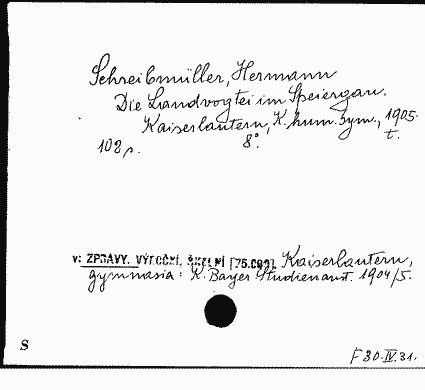 Schreibmüller, Hermann
Die Landvogtei im Speiergau.
Kaiserlautern, K. hum. Gym., 1905.
102 p. 8°. t.
v: ZPRÁVY. VÝROČNÍ. ŠKOLNÍ [75.C99]. Kaiserlautern,
gymnasia: K. Bayer Studienanst. 1904/5.
S
F30.IV.31.